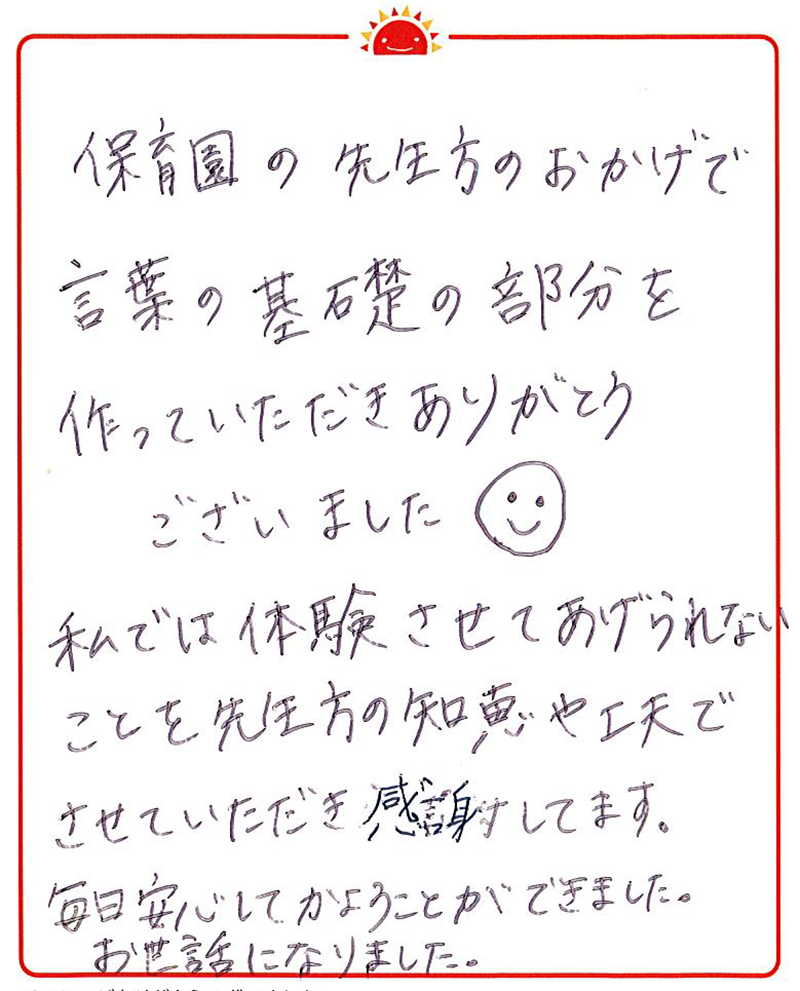 保育園の先生方のおかげで
言葉の基礎の部分を
作っていただきありがとう
ございました
私では体験させてあげられない
ことを先生方の知恵や工夫で
させていただき感謝してます。
毎日安心してかようことができました。
お世話になりました。